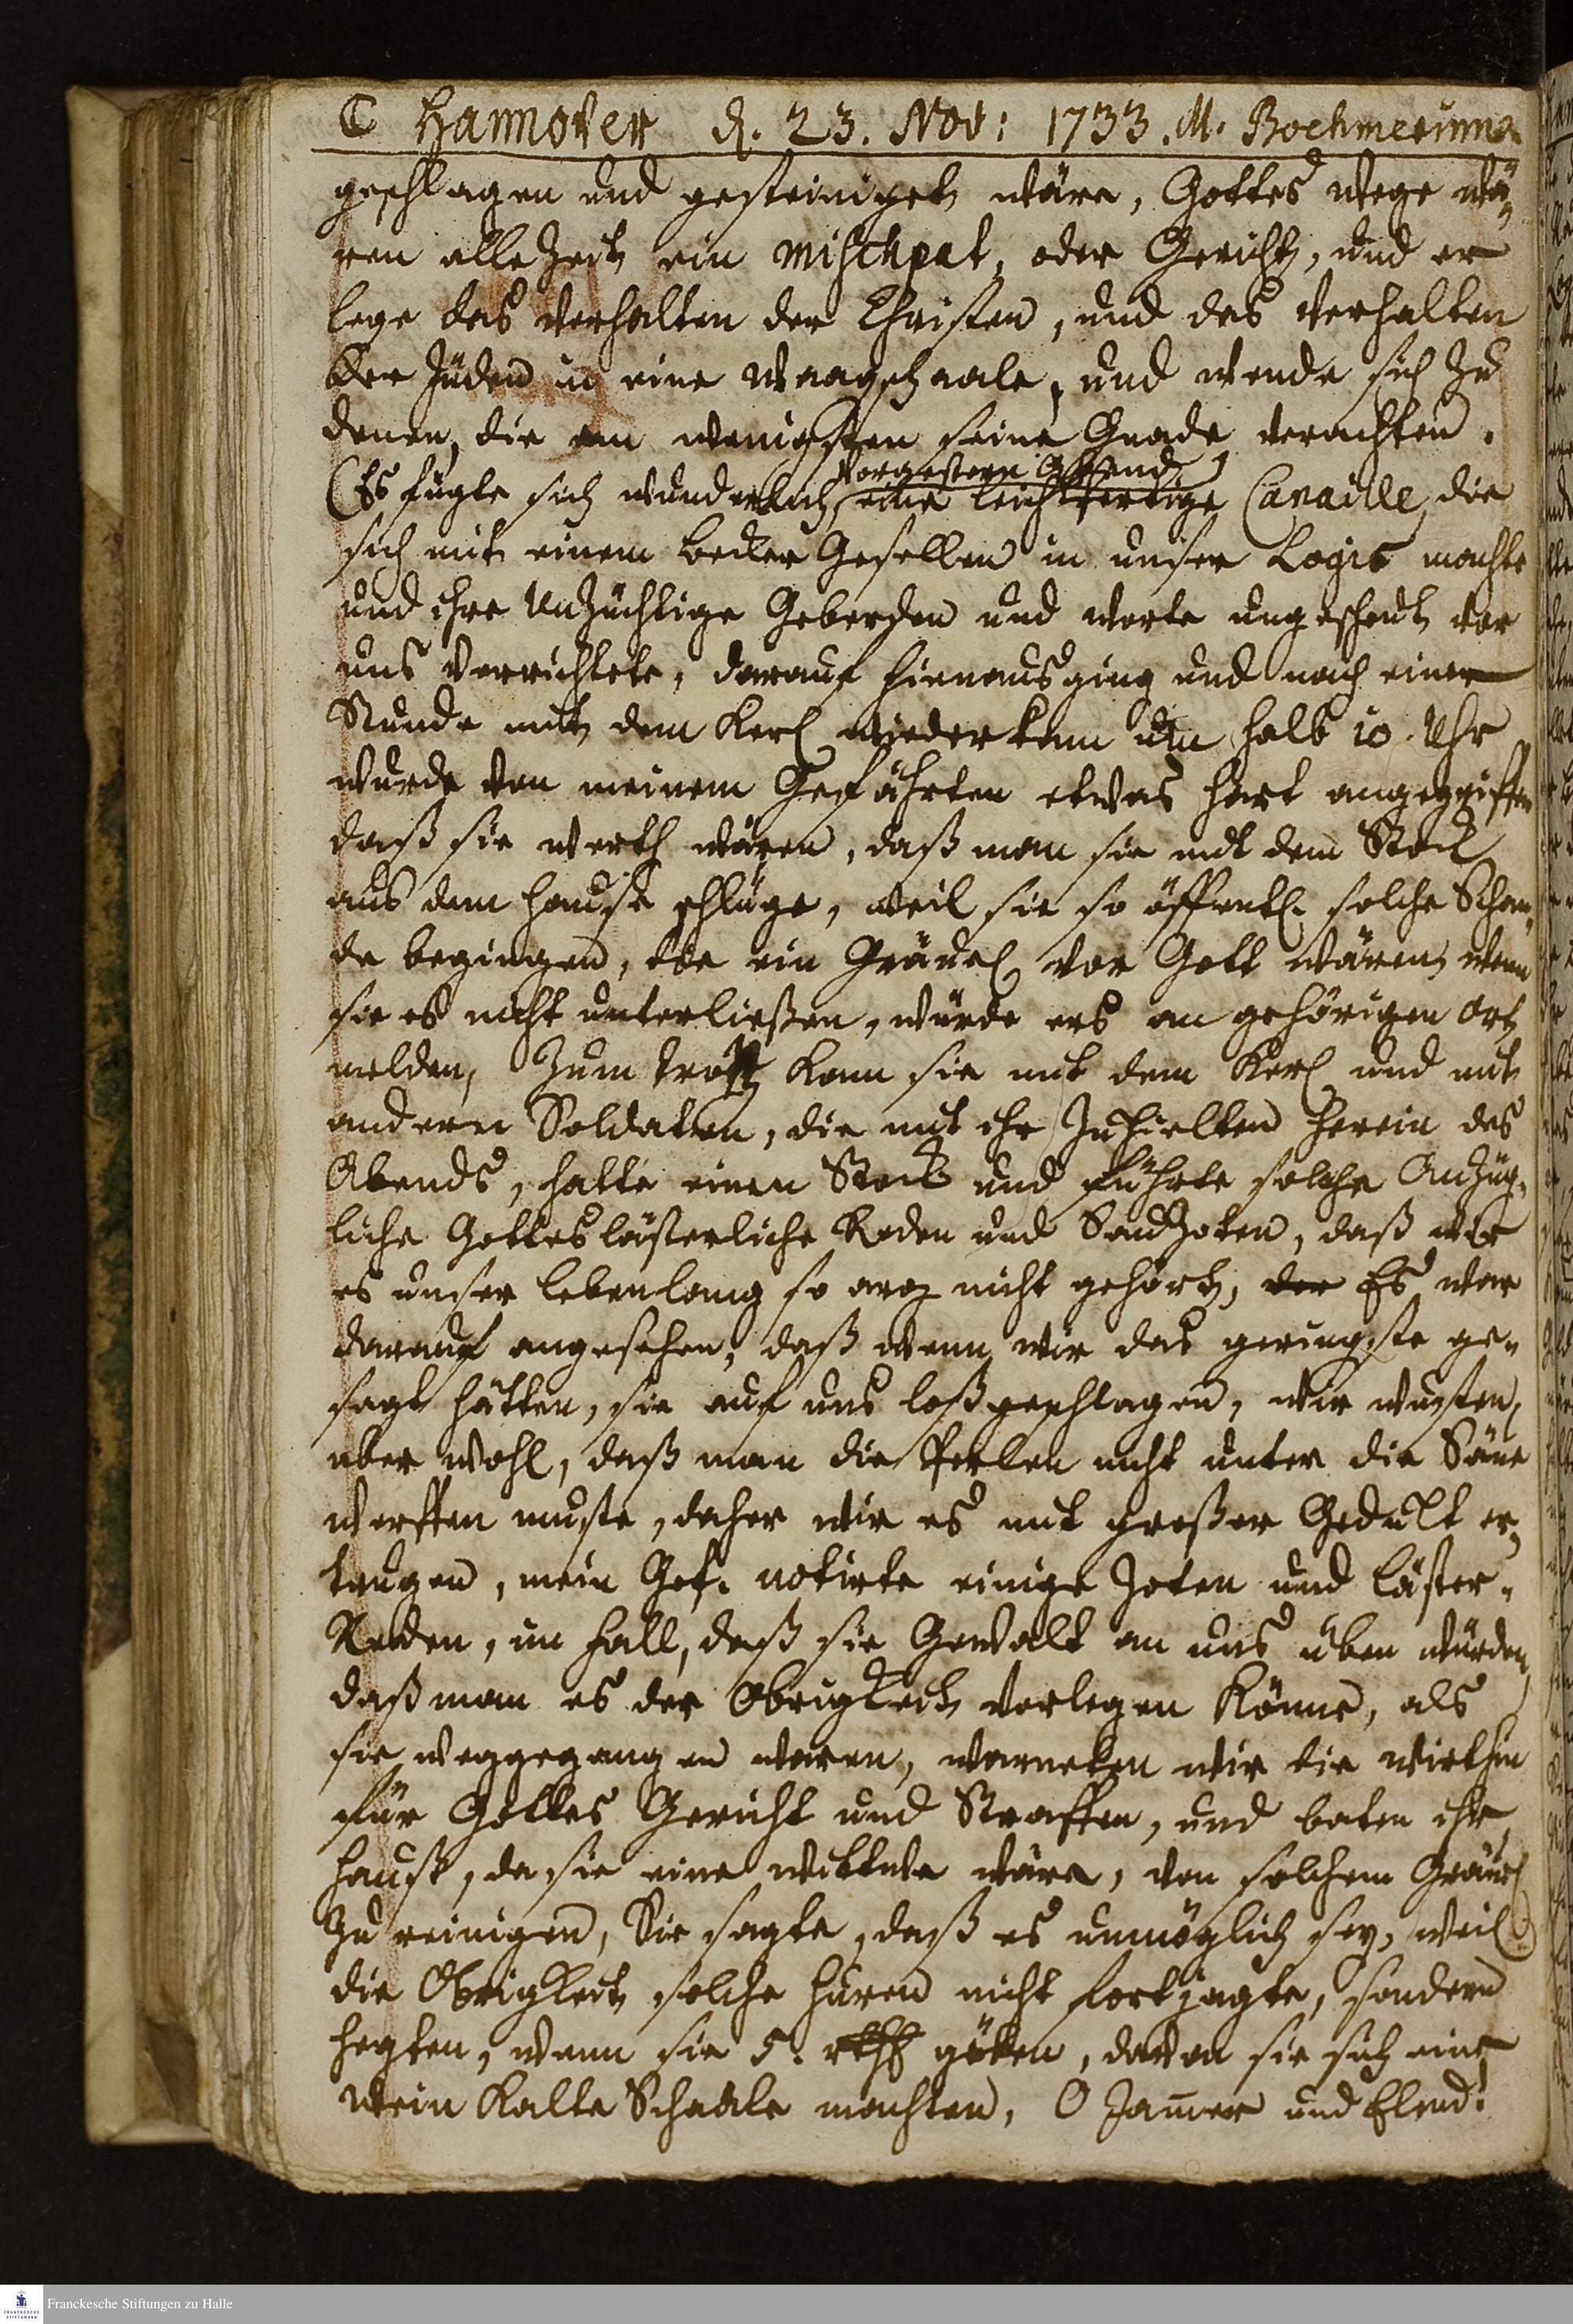 ☾ Hannover d. 23. Nov: 1733. M. Boehmerinna
geschlagen und gesteiniget wäre, Gottes Wege wä-
ren alle Zeit ein Mischpat, oder Gericht, und er
lege das Verhalten der Christen, und das Verhalten
der Jüden in eine Waagschaale, und wende sich zu
denen, die am wenigsten seine Gnade verachten.
Vorgestern Abend
(Es fügte sich wunderlich, eine leichtfertige Canaille, die
sich mit einem Becker Gesellen in unser Logis machte
und ihre Unzüchtige Geberden und Worte ungescheut vor
uns verrichtete, darauf hienausging und nach einer
Stunde mit dem Kerl wiederkam um halb 10. Uhr
wurde von meinem Gefährten etwas hart angegriffen
daß sie werth wären, daß man sie mit dem Stock
aus dem Hause schlüge, weil sie so öffentl. solche Schan-
de begingen, die ein Gräuel vor Gott wären, wenn
sie es nicht unterließen, würde ers an gehörigen Ort
melden, Zum trotz kam sie mit dem Kerl und mit
andern Soldaten, die mit ihr zuhielten herein des
Abends, hatte einen Stock und führte solche Anzüg-
liche Gotteslästerliche Reden und Sauzoten, daß wir
es unser lebenlang so arg nicht gehört, der Es war
darauf angesehen, daß wenn wir das geringste ge-
sagt hätten, sie auf uns loßgeschlagen, wir wusten
aber wohl, daß man die Perlen nicht unter die Säue
werffen muste, daher wir es mit großer Gedult er-
trugen, mein Gef. notirte einige Zoten und Läster-
Reden, im fall, daß sie Gewalt an uns üben würden,
daß man es der Obrigkeit vorlegen könne, als
sie weggegangen waren, warneten wir die Wirthin
für Gottes Gericht und Straffen, und baten ihr
Hauß, da sie eine Wittwe wäre, von solchem Gräuel
zu reinigen, Sie sagte, daß es unmöglich sey, weil
die Obrigkeit solche Huren nicht fortjagte, sondern
hegten, wenn sie 5. rthl gäben, davon sie sich eine
Wein Kalte Schaale machten, O Jammer und Elend!
Franckesche Stiftungen zu Halle
FRANCKESCHE
STIFTUNGEN